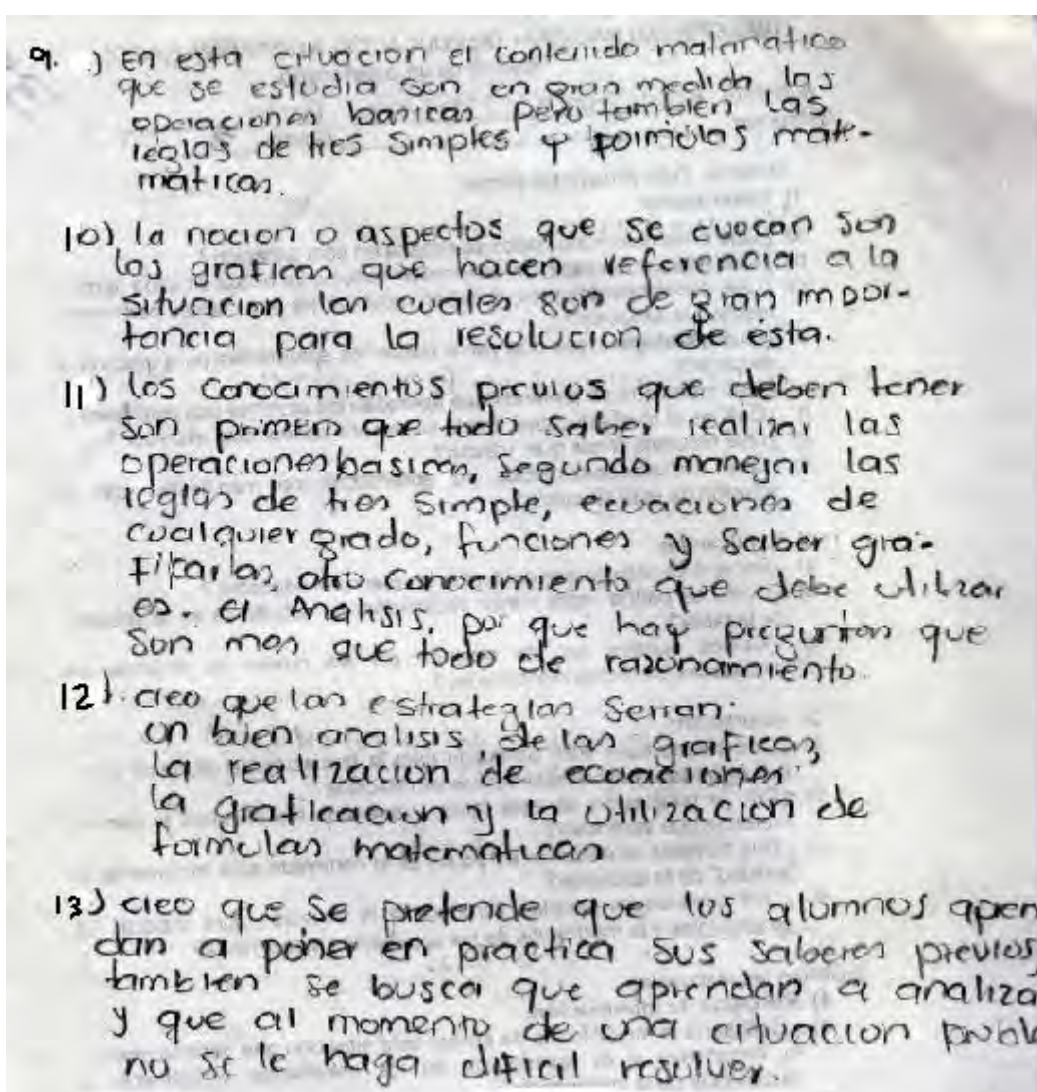 9. .) En esta cituacion el contenido matematico
que se estudia son en gran medida, las
operaciones basicas pero tambien las
reglas de tres simples y formulas mate-
maticas.
10) la nocion o aspectos que se evocan son
las graficas que hacen referencia a la
situacion las cuales son de gran impor-
tancia para la resolucion de esta.
11) los conocimientos previos que deben tener
son primero que todo saber realizar las
operaciones basicas, segundo manejar las
reglas de tres simple, ecuaciones de
cualquier grado, funciones y saber gra-
ficarlas, otro conocimiento que debe utilizar
es. el Analisis, por que hay preguntas que
son mas que todo de razonamiento.
12). creo que las estrategias serian:
un buen analisis, de las graficas,
la realizacion de ecuaciones
la graficacion y la utilizacion de
formulas matematicas
13) creo que se pretende que los alumnos apren
dan a poner en practica sus saberes previos,
tambien se busca que aprendan a analiza
y que al momento de una cituacion proble
no se le haga dificil resolver.